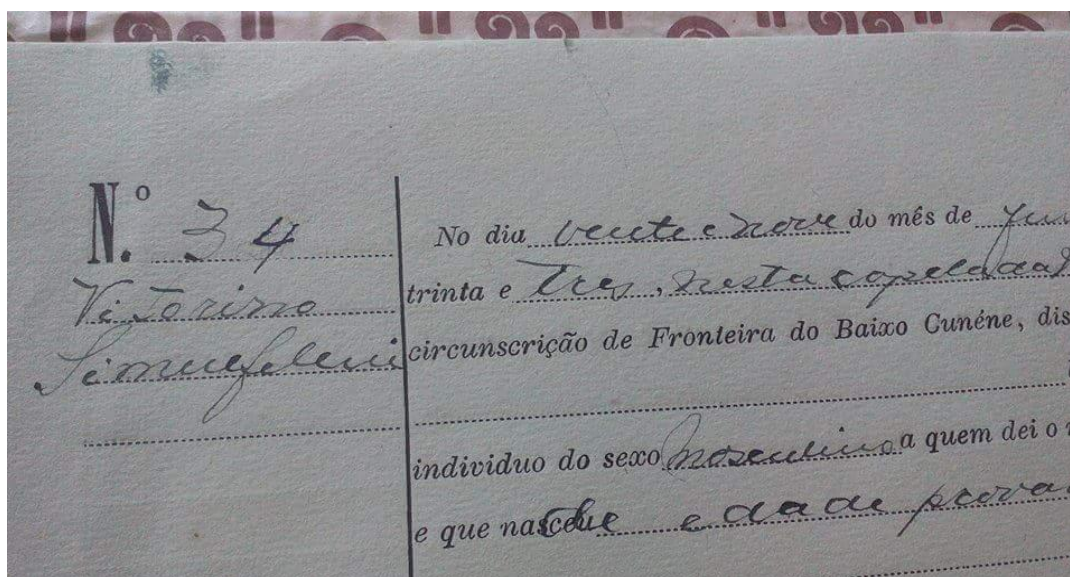 N.º 34
Vitorino
No dia vente e nove do mês de
trinta e tres, nesta capela da
circunscrição de Fronteira do Baixo Cunéne, dis
individuo do sexo masculino a quem dei o
e que nasceu e dade prova